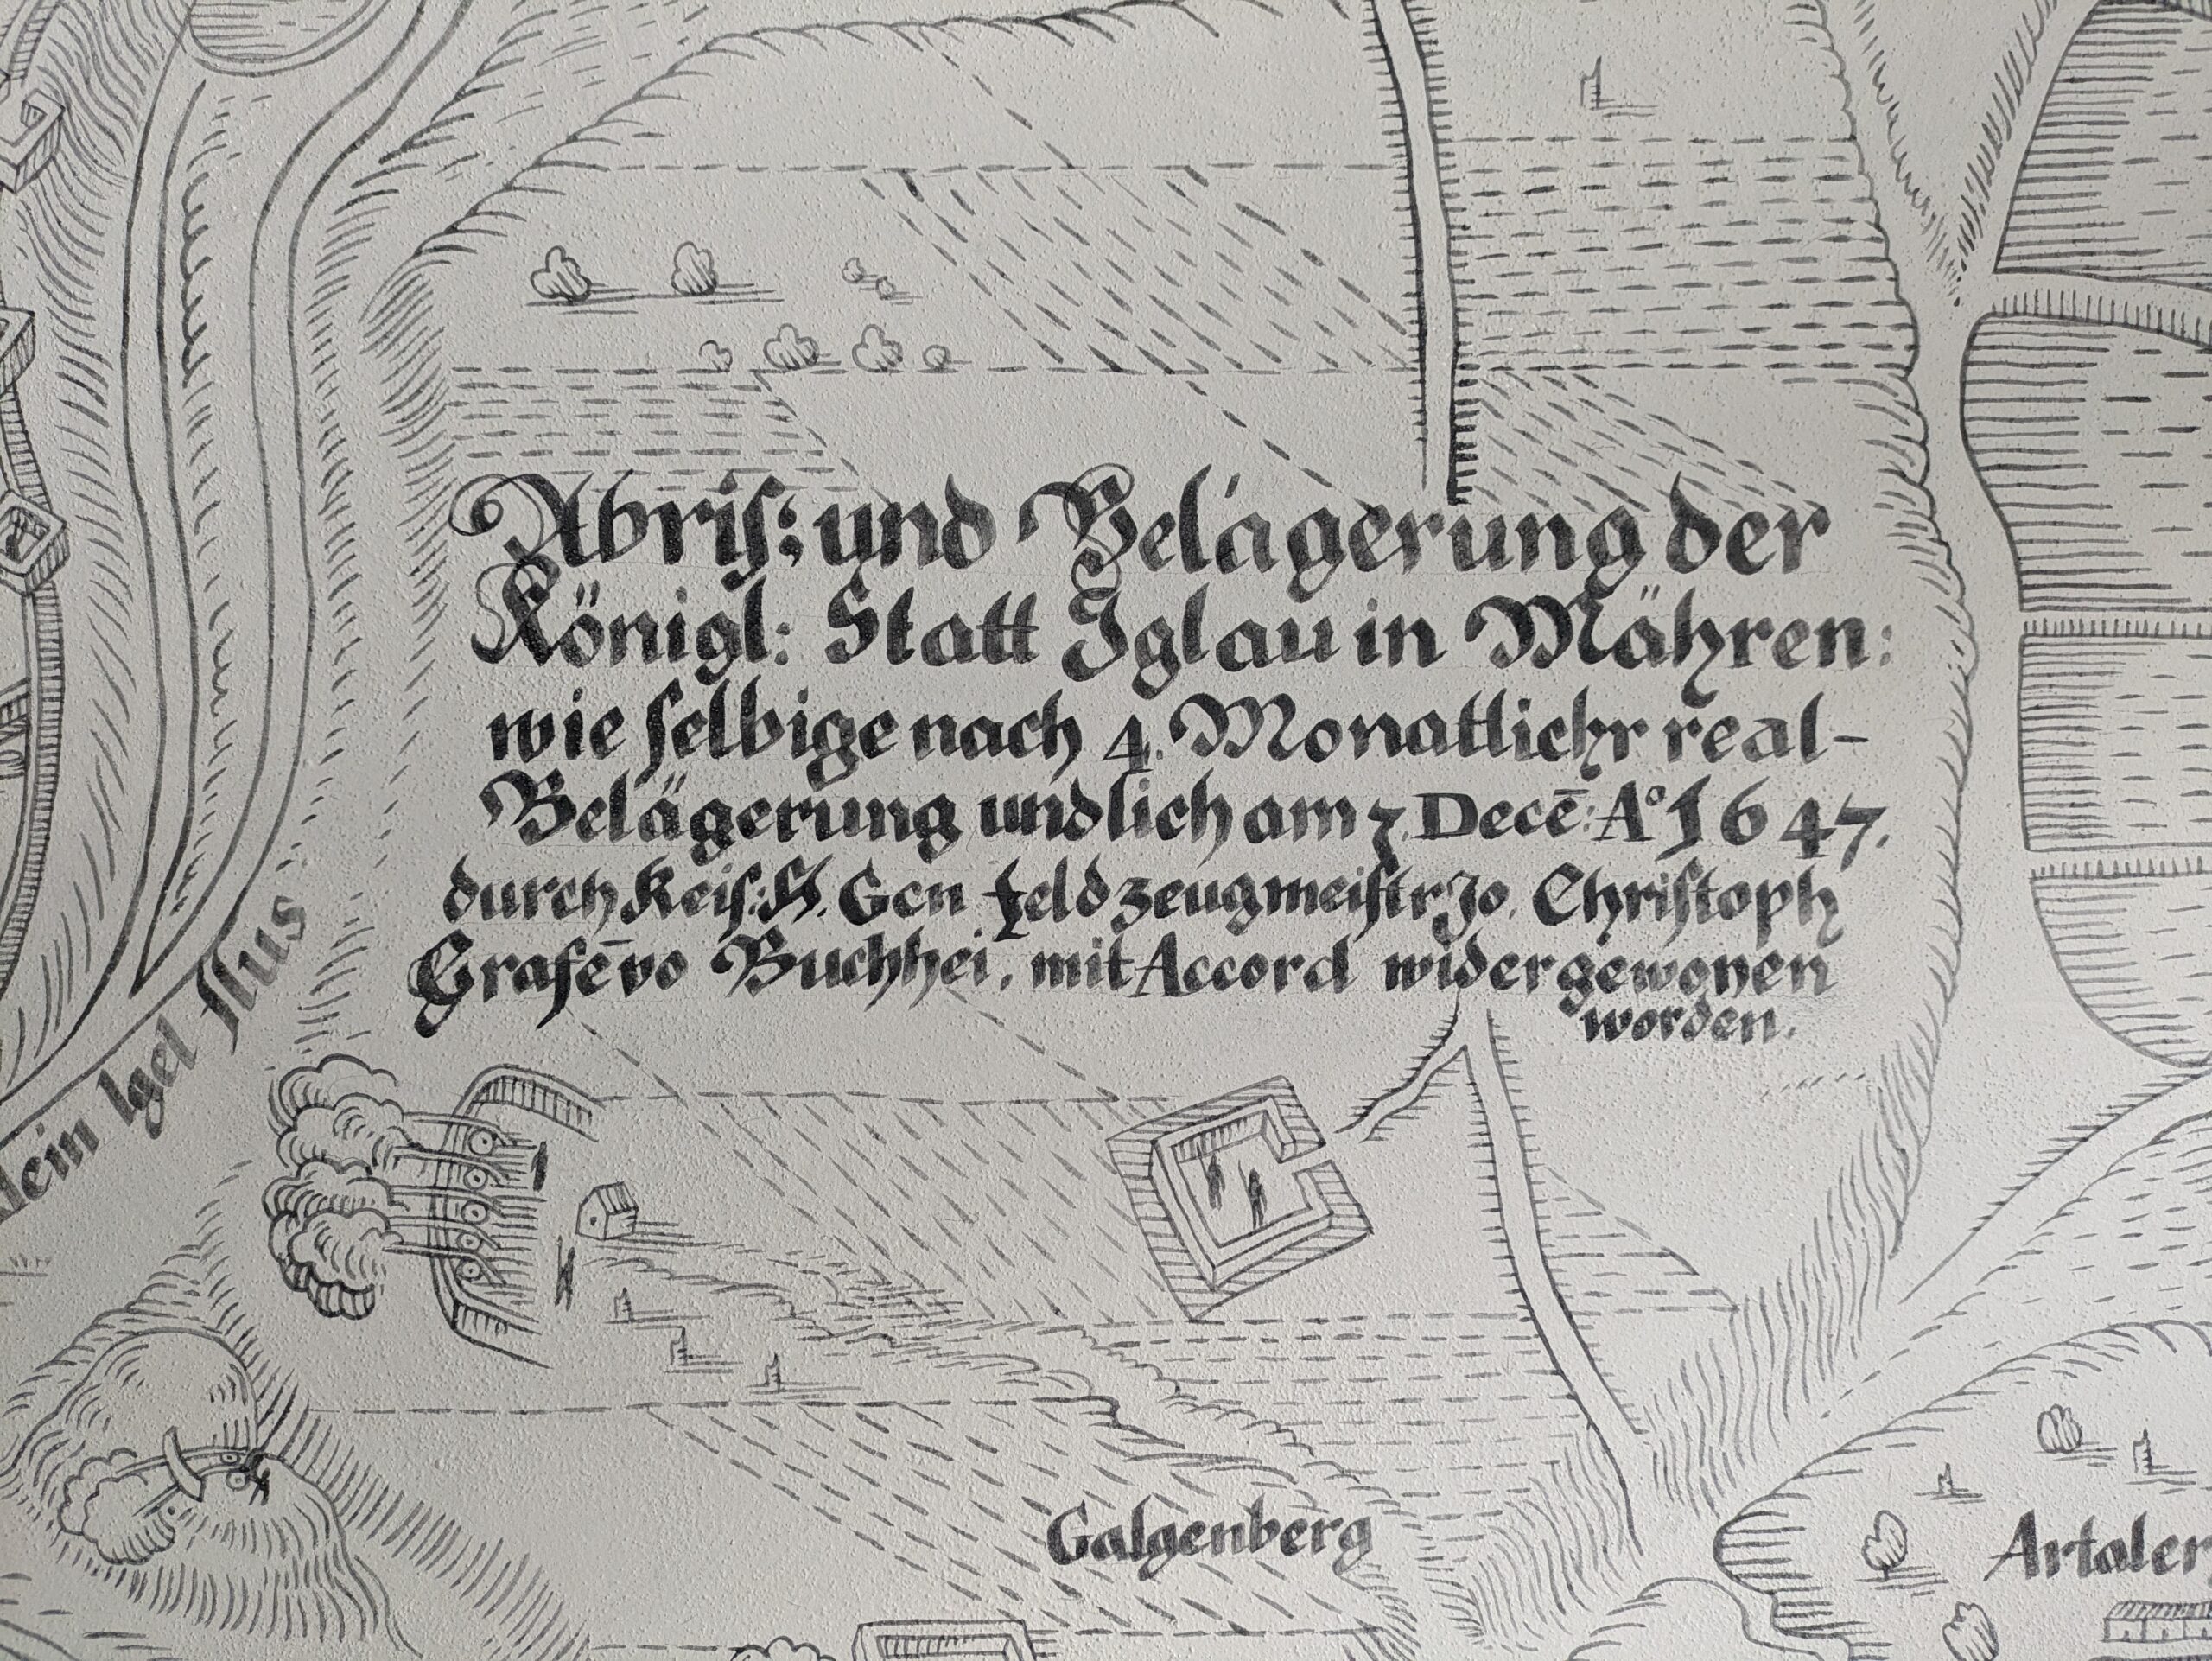 Abriſ: und Belágerung der
Königl: Statt Iglau in Mähren:
wie ſelbige nach 4. Monatlichr real-
Belägerung undlich am 7. Decē: Aº 1647.
durch Keiſ: H. Gen feldzeugmeiſtr Jo. Chriſtoph
Grafē vo Buchhei. mit Accord widergewonen
worden.
klein Igel flus
Galgenberg
Artoler